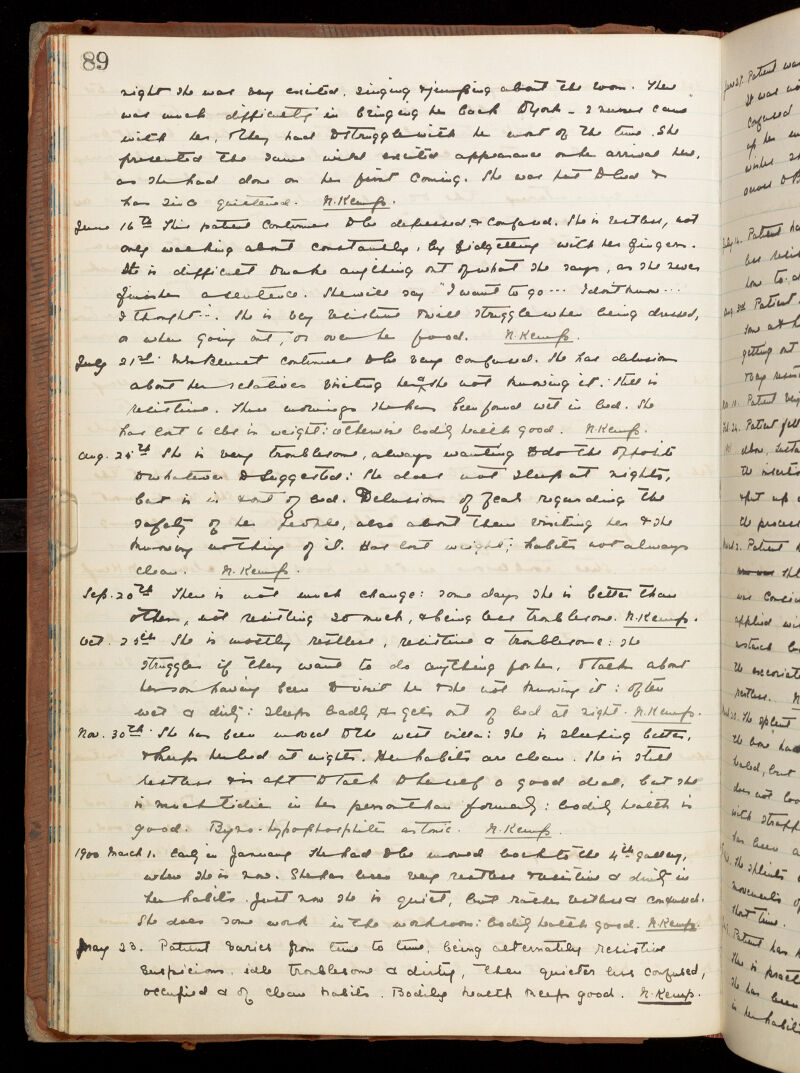 89
night she was very excited, singing & jumping about the room. There
was much difficulty in bringing her back to York - 2 nurses came
with her, & they had to struggle with her most of the time. She
presented the same wild excited appearance on her arrival here,
as she had done on her first coming. She was put to bed &
has since quietened. N. Kemp.
June 16th This patient continues to be depressed & confused. She is restless, not
only walking about constantly, but fidgetting with her fingers.
It is difficult to make anything out of what she says, as she never
finishes a sentence. She will say "I want to go ... I dont know ...
I thought ... She is very resistive & will struggle when being dressed,
or when going out, or over her food. N. Kemp.
July 21st. continues to be very confused. She has delusions
about her relatives visiting her & she not knowing it. Still is
resistive. Three mornings she has been found wet in bed. She
has lost 6 lbs in weight: otherwise bodily health good. N. Kemp.
Aug. 25th She is very troublesome, always wanting to do the opposite
to whatever is suggested: she does not sleep at nights,
but is in & out of bed. Delusions of fear regarding the
safety of her people, also about them visiting her & she
knowing nothing of it. Has lost weight; habits not always
clean. N. Kemp.
Sep. 20th There is not much change: some days she is better than
others, not resisting so much, & being less troublesome. N. Kemp.
Oct. 25th She is mostly restless, resistive & troublesome: she
struggles if they want to do anything for her, & talks about
her son having been to visit her & she not knowing it: often
wet & dirty: sleeps badly & gets out of bed at night. N. Kemp.
Nov. 30th. She has been moved to the west villa: she is sleeping better,
& keeps her bed at nights. Her habits are clean. She is still
restless & is apt to talk to herself a good deal, but she
is much tidier in her person than formerly: bodily health is
good. Byno-hypophosphites as tonic. N. Kemp.
1900 March 1. Early in January she had to be moved back to the 4th gallery,
where she is now. She has been very restless & resistive & dirty in
her habits. Just now she is quiet, but rather restless & confused.
She does some work in the workroom: bodily health good. N. Kemp.
May 23. Patient varies from time to time, being alternately resistive
suspicious, idle troublesome & dirty, then quieter less confused,
occupied & of clean habits. Bodily health keeps good. N. Kemp.
Patient was
It was
confused
Patient
Patient
getting out
Patient
Patient fell
the process
Patient
applied
The splint
The splints
movements of
that time.
Patient has
She has been
in her habits